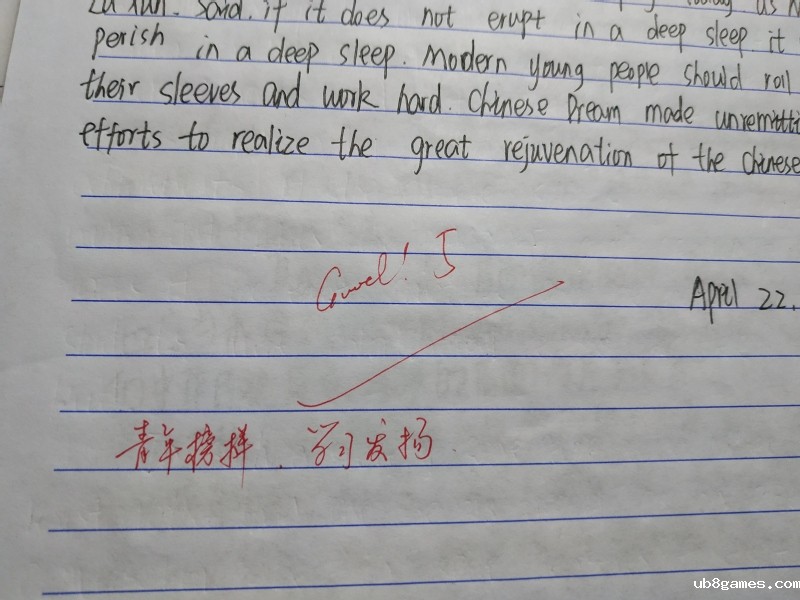 Lu Xun. Said. if it does not erupt in a deep sleep it
perish in a deep sleep. Modern young people should roll
their sleeves and work hard. Chinese Dream made
efforts to realize the great rejuvenation of the Chinese
Good! 5
April 22.
青年榜样、学习发扬.
ub8games.com